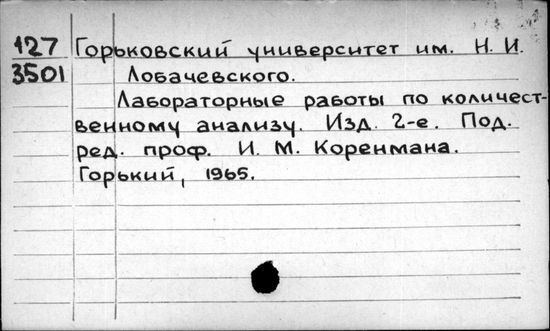 127 Горьковский университет им. Н. И.
3501 Лобачевского.
Лабораторные работы по количест-
венному анализу. Изд. 2-е. Под.
ред. проф. И. М. Коренмана.
Горький, 1965.